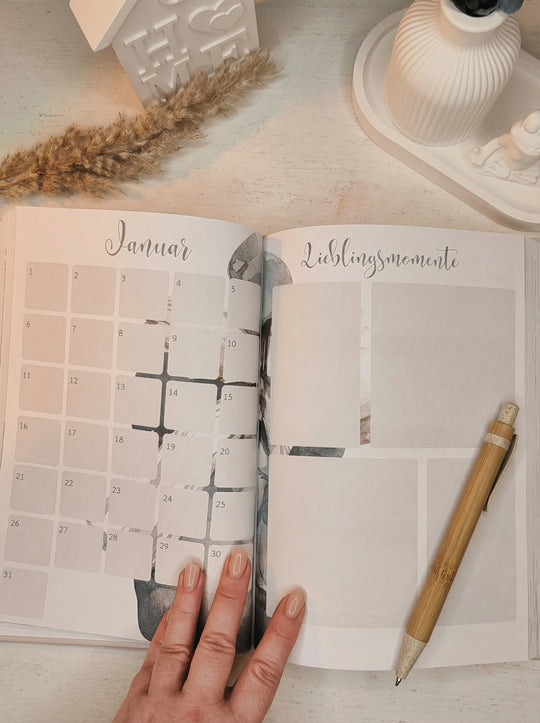 HOME
Januar
Lieblingsmomente
1 2 3 4 5
6 7 8 9 10
11 12 13 14 15
16 17 18 19 20
21 22 23 24 25
26 27 28 29 30
31